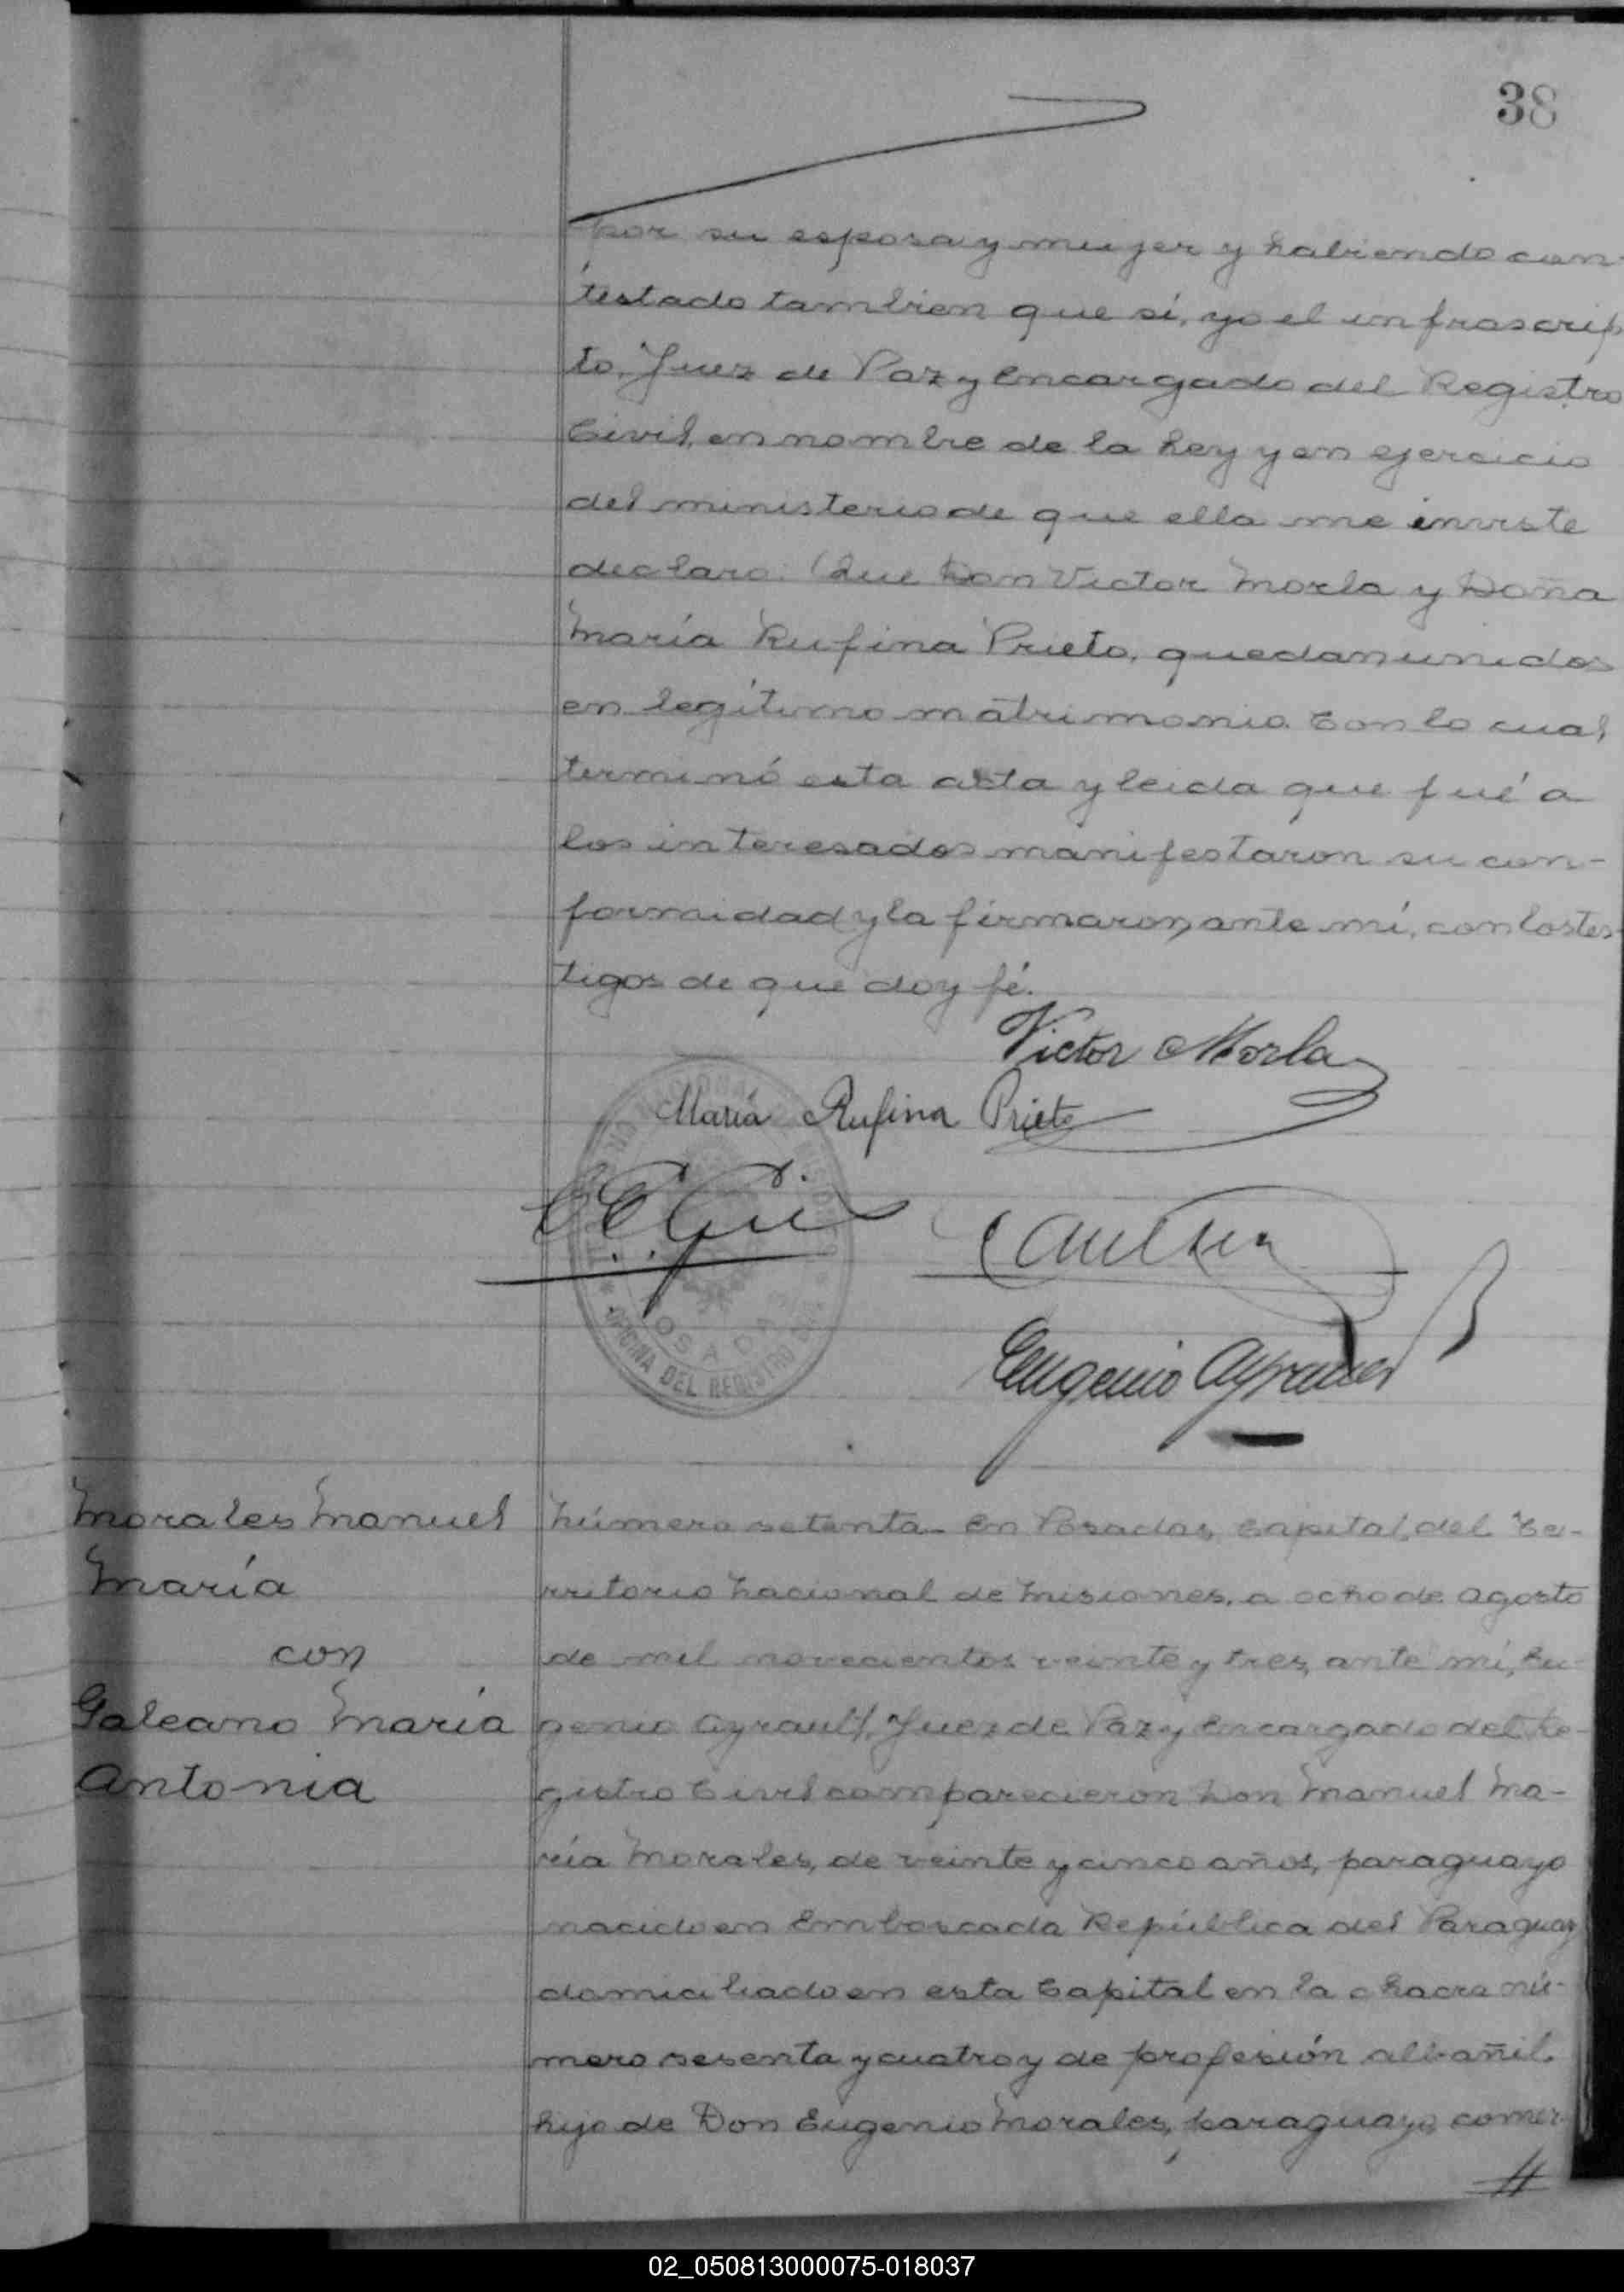 38
por su esposa y mujer y habiendo con-
testado tambien que sí, yo el infrascrip
to, Juez de Paz y Encargado del Registro
Civil, en nombre de la Ley y en ejercicio
del ministerio de que ella me inviste
declaro: Que Don Victor Morla y Doña
María Rufina Prieto, quedan unidos
en legítimo matrimonio. Con lo cual
terminó esta acta y leida que fué a
los interesados manifestaron su con-
formidad y la firmaron, ante mí, con los tes-
tigos de que doy fé.
Victor Morla
María Rufina Prieto
POSADAS
OFICINA DEL REGISTRO
Eugenio Ayrault
Morales Manuel
María
con
Galeano María
Antonia
Número setenta. En Posadas, Capital del Te-
rritorio Nacional de Misiones, a ocho de Agosto
de mil novecientos veinte y tres, ante mí, Eu-
genio Ayrault, Juez de Paz y Encargado del Re-
gistro Civil comparecieron Don Manuel Ma-
ría Morales, de veinte y cinco años, paraguayo
nacido en Emboscada República del Paraguay
domiciliado en esta Capital en la chacra nú-
mero sesenta y cuatro y de profesión albañil.
hijo de Don Eugenio Morales, paraguayo, comer-
//
02_050813000075-018037